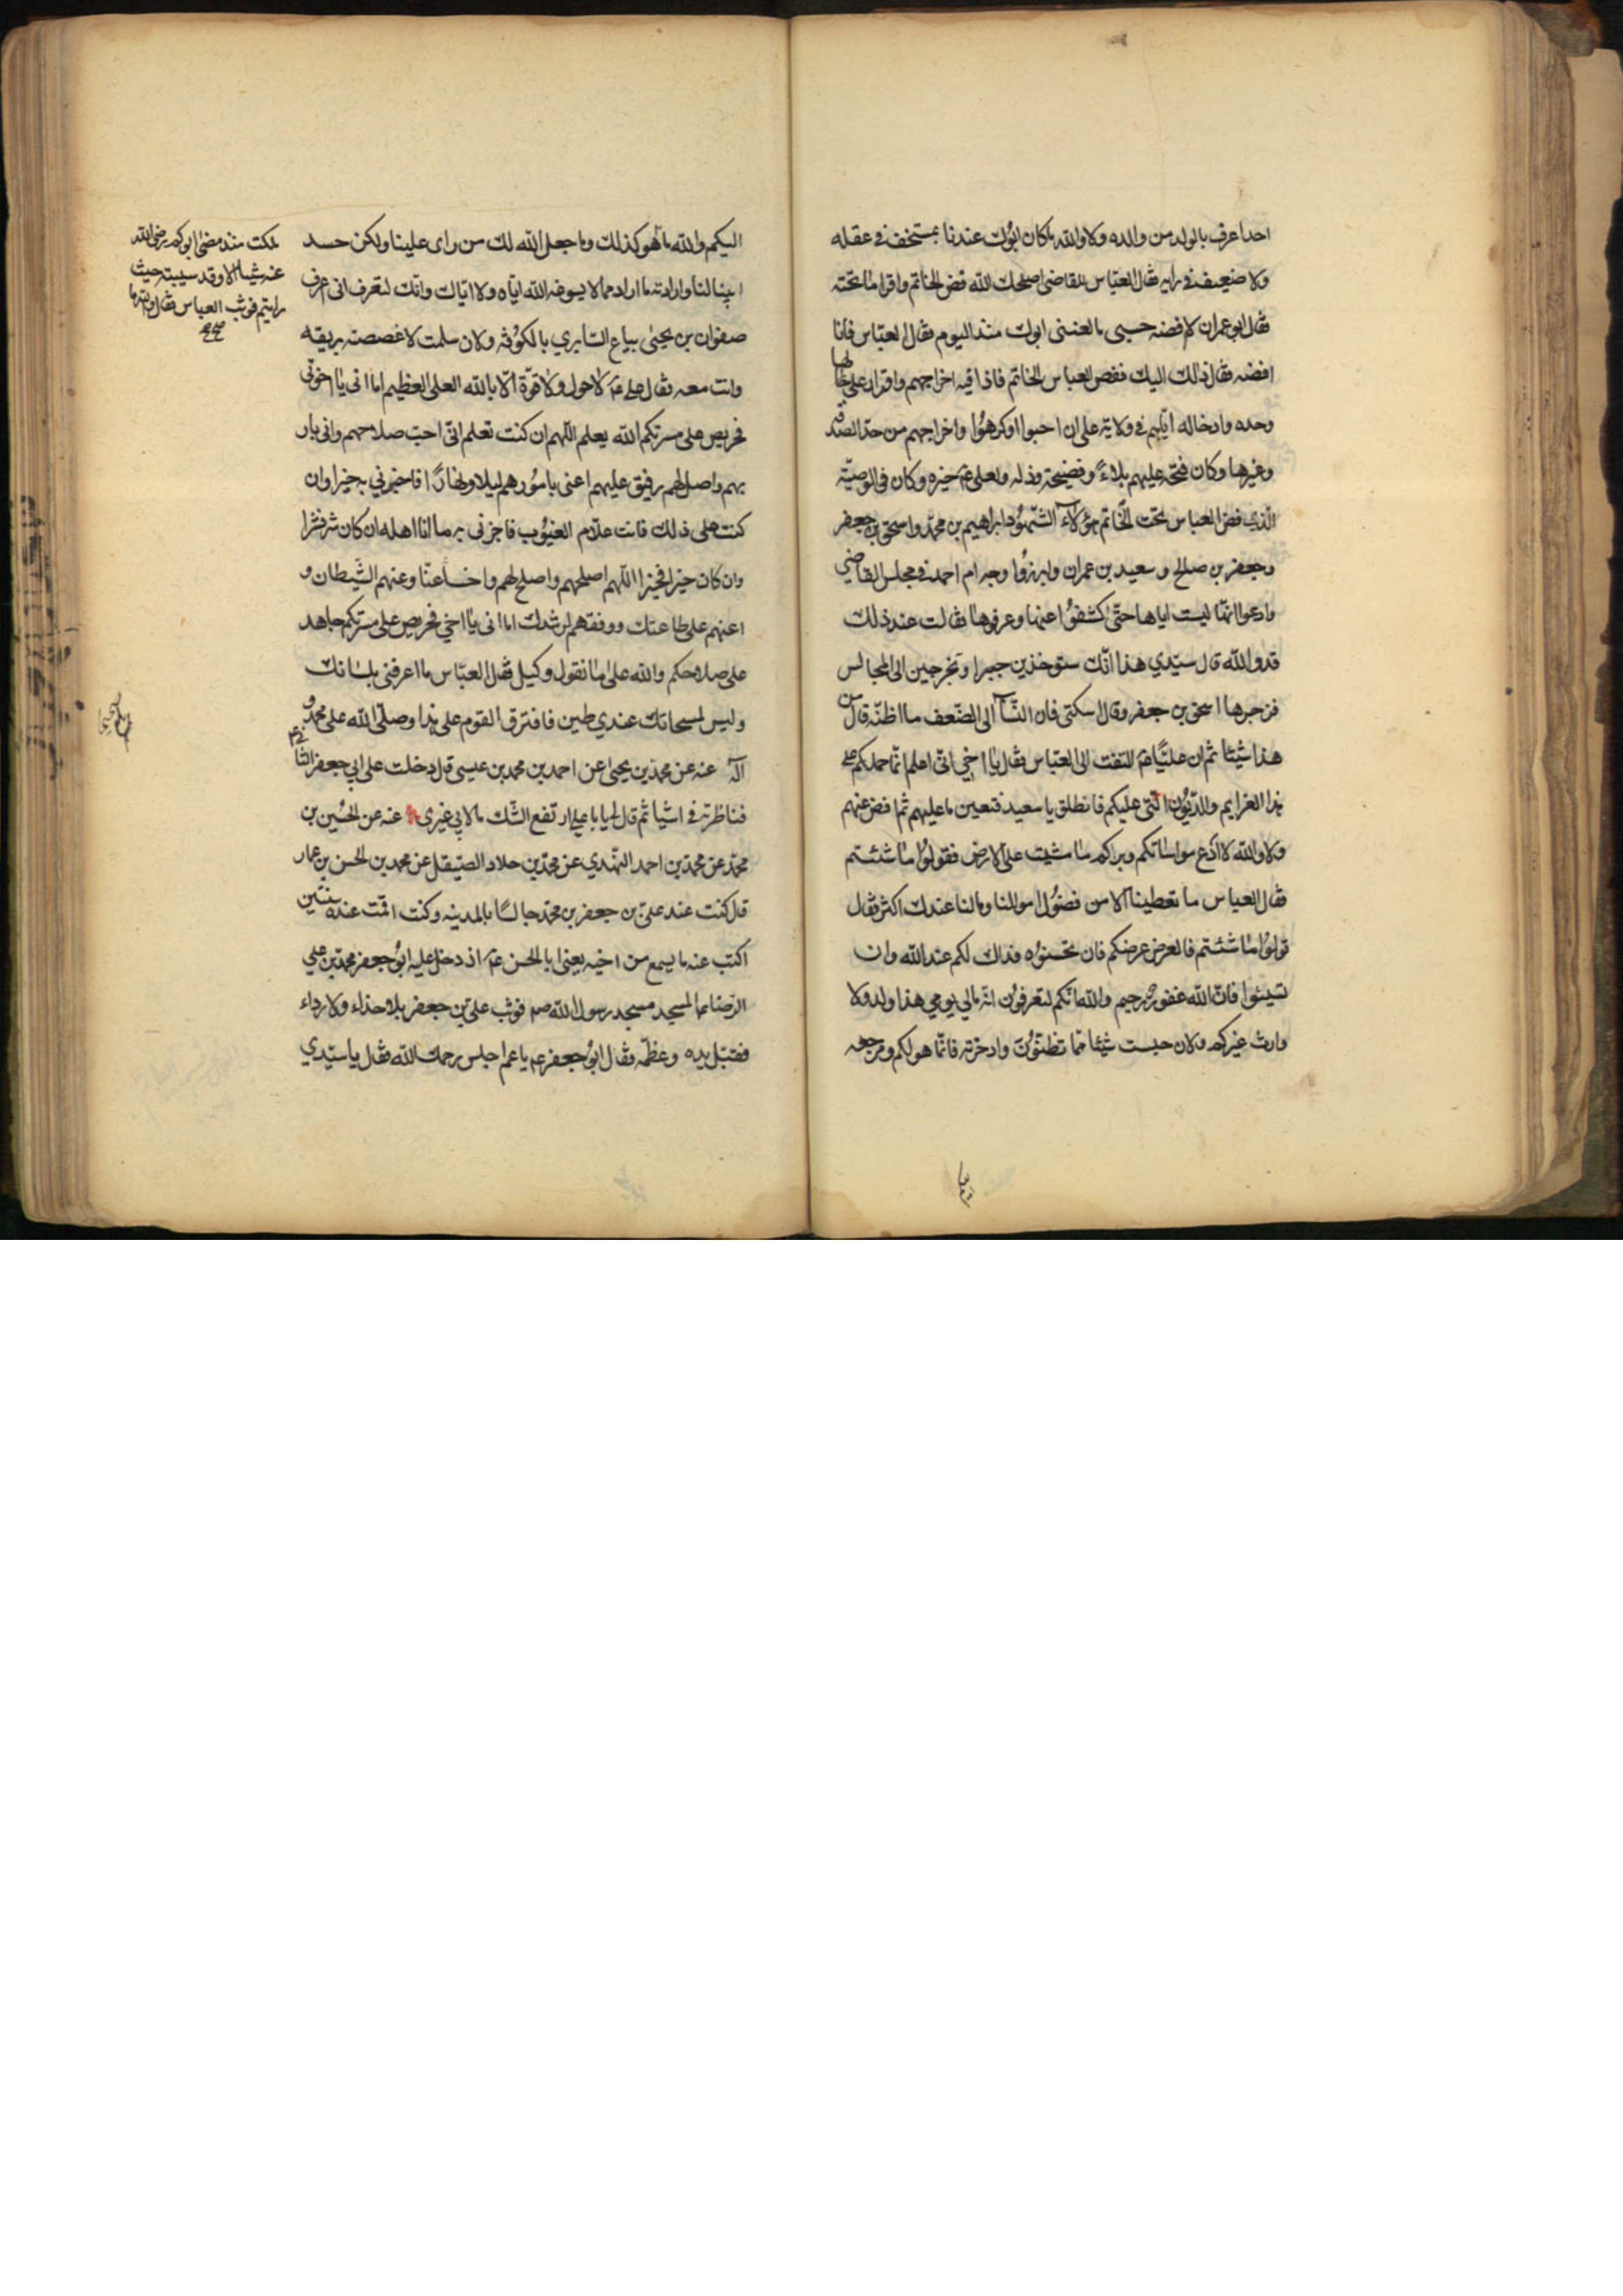 احدا عرف بالولد من والده ولا والله ما كان ابوك عندنا بمستخف في عقله
ولا ضعيف في رايه فقال العباس للقاضي اصلحك الله فض الخاتم واقرا ما تحته
فقال ابو عمران لا افضه حسبي ما لعنني ابوك منذ اليوم فقال العباس فانا
افضه فقال ذلك اليك ففض العباس الخاتم فاذا فيه اخراجهم واقرار علي لها
وحده وادخاله اياهم في ولاية علي ان احبوا او كرهوا واخراجهم من حد الصدقة
وغيرها وكان فتحه عليهم بلاء وفضيحة وذلة ولعلي ع خيره وكان في الوصية
الذي فض العباس تحت الخاتم هؤلاء الشهود ابراهيم بن محمد واسحق بن جعفر
وجعفر بن صالح و سعيد بن عمران وابرزوا وجه ام احمد في مجلس القاضي
وادعوا انها ليست اياها حتى كشفوا عنها وعرفوها فقالت عند ذلك
قد والله قال سيدي هذا انك ستوخذين جبرا وتخرجين الى المجالس
فزجرها اسحق بن جعفر وقال اسكتي فان النسآ الى الضعف ما اظنه قال من
هذا شيئا ثم ان عليا ع التفت الى العباس فقال يا اخي اني اعلم انما حملكم على
هذا الغرايم والديون التي عليكم فانطلق يا سعيد فتعين ما عليهم ثم اقض عنهم
ولا والله لا ادع مواساتكم وبركم ما مشيت على الارض فقولوا ما شئتم
فقال العباس ما تعطينا الا من فضول اموالنا ومالنا عندك اكثر فقال
قولوا ما شئتم فالعرض عرضكم فان تحسنوه فذاك لكم عند الله وان
تسيئوا فان الله غفور رحيم والله انكم لتعرفون انه مالي يومي هذا ولد ولا
وارث غيركم ولان حبست شيئا مما تظنون وادخرته فانما هو لكم ومرجعه
اليكم والله ما هو كذلك وما جعل الله لك من راى علينا ولكن حسد
ابينا لنا وارادته ما اراد مما لا يسوغه الله اياه ولا اياك وانك لتعرف اني اعرف
صفوان بن يحيى بياع السابري بالكوفة ولان سلمت لاغصصنه بريقه
وانت معه فقال علي ع لا حول ولا قوة الا بالله العلي العظيم اما اني يا اخوتي
فحريص على مسرتكم الله يعلم اللهم ان كنت تعلم اني احب صلاحهم واني بار
بهم واصل لهم رفيق عليهم اعنى بامورهم ليلا ونهارا فاجزني به خيرا وان
كنت على ذلك فانت علام الغيوب فاجزني به ما انا اهله ان كان شر فشرا
وان كان خيرا فخيرا اللهم اصلحهم واصلح لهم واخسأ عنا وعنهم الشيطان و
اعنهم على طاعتك ووفقهم لرشدك اما اني يا اخي فحريص على مسرتكم جاهد
على صلاحكم والله على ما نقول وكيل فقال العباس ما اعرفني بلسانك
وليس لمسحاتك عندي طين فافترق القوم على هذا وصلى الله على محمد و
آله عنه عن محمد بن يحيى عن احمد بن محمد بن عيسى قال دخلت على ابي جعفر الثاني ع
فناظرته في اشيا ثم قال لي يا با علي ارتفع الشك ما لابي غيري عنه عن الحسين بن
محمد عن محمد بن احمد النهدي عن محمد بن خلاد الصيقل عن محمد بن الحسن بن عمار
قال كنت عند علي بن جعفر بن محمد جالسا بالمدينه وكنت اقمت عنده سنتين
اكتب عنه ما يسمع من اخيه يعني ابا الحسن ع اذ دخل عليه ابو جعفر محمد بن علي
الرضا ع المسجد مسجد رسول الله ص فوثب علي بن جعفر بلا حذاء ولا رداء
فقبل يده وعظمه فقال ابو جعفر ع يا عم اجلس رحمك الله فقال يا سيدي
ملكت منذ مضى ابوكم رضي الله
عنه شيئا الا وقد سيبته حيث
رايتم فوثب العباس فقال والله ما